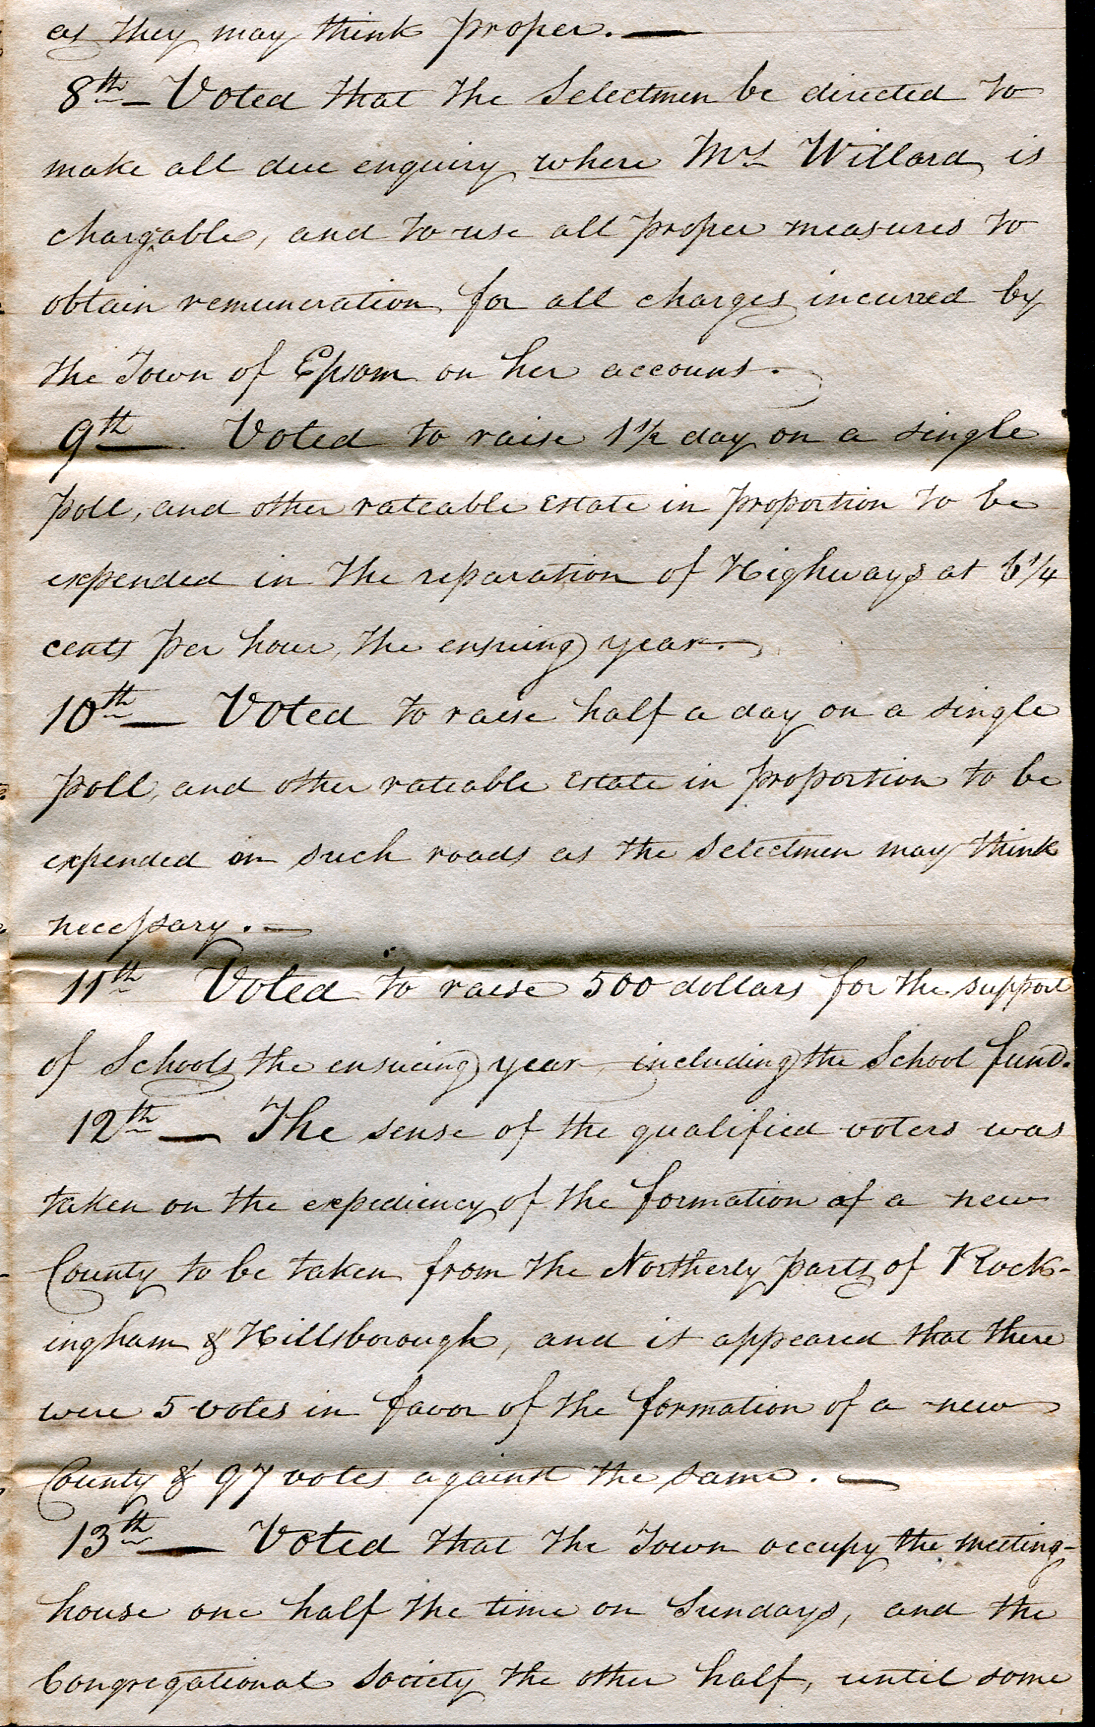 as they may think proper. —
8th — Voted that the Selectmen be directed to
make all due enquiry where Mrs Willard is
chargable, and to use all proper measures to
obtain remuneration for all charges incurred by
the Town of Epsom on her account.
9th — Voted to raise 1 1/2 day on a single
poll, and other rateable Estate in proportion to be
expended in the reparation of Highways at 6 1/4
cents per hour, the ensuing year. —
10th — Voted to raise half a day on a single
poll, and other rateable Estate in proportion to be
expended on such roads as the Selectmen may think
necessary. —
11th Voted to raise 500 dollars for the support
of Schools the ensueing year including the School fund.
12th — The sense of the qualified voters was
taken on the expediency of the formation of a new
County to be taken from the Northerly parts of Rock-
ingham & Hillsborough, and it appeared that there
were 5 votes in favor of the formation of a new
County & 97 votes against the same. —
13th — Voted that the Town occupy the meeting-
house one half the time on Sundays, and the
Congregational Society the other half, until some